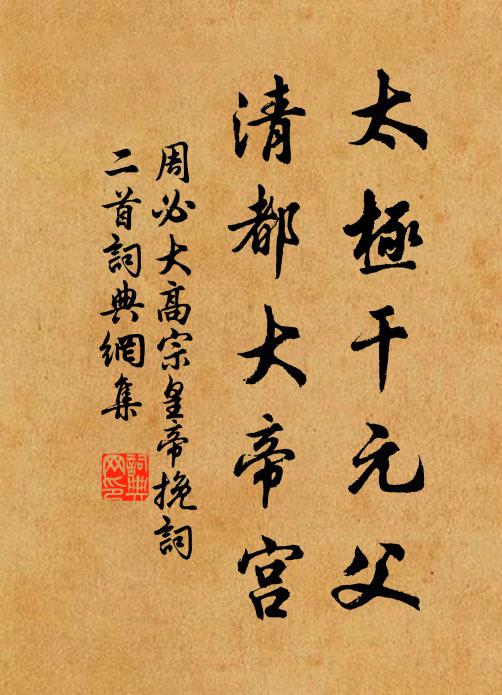 太極干元父
清都大帝宮
周必大高宗皇帝挽詞
二首詞典網集
詞典
网印